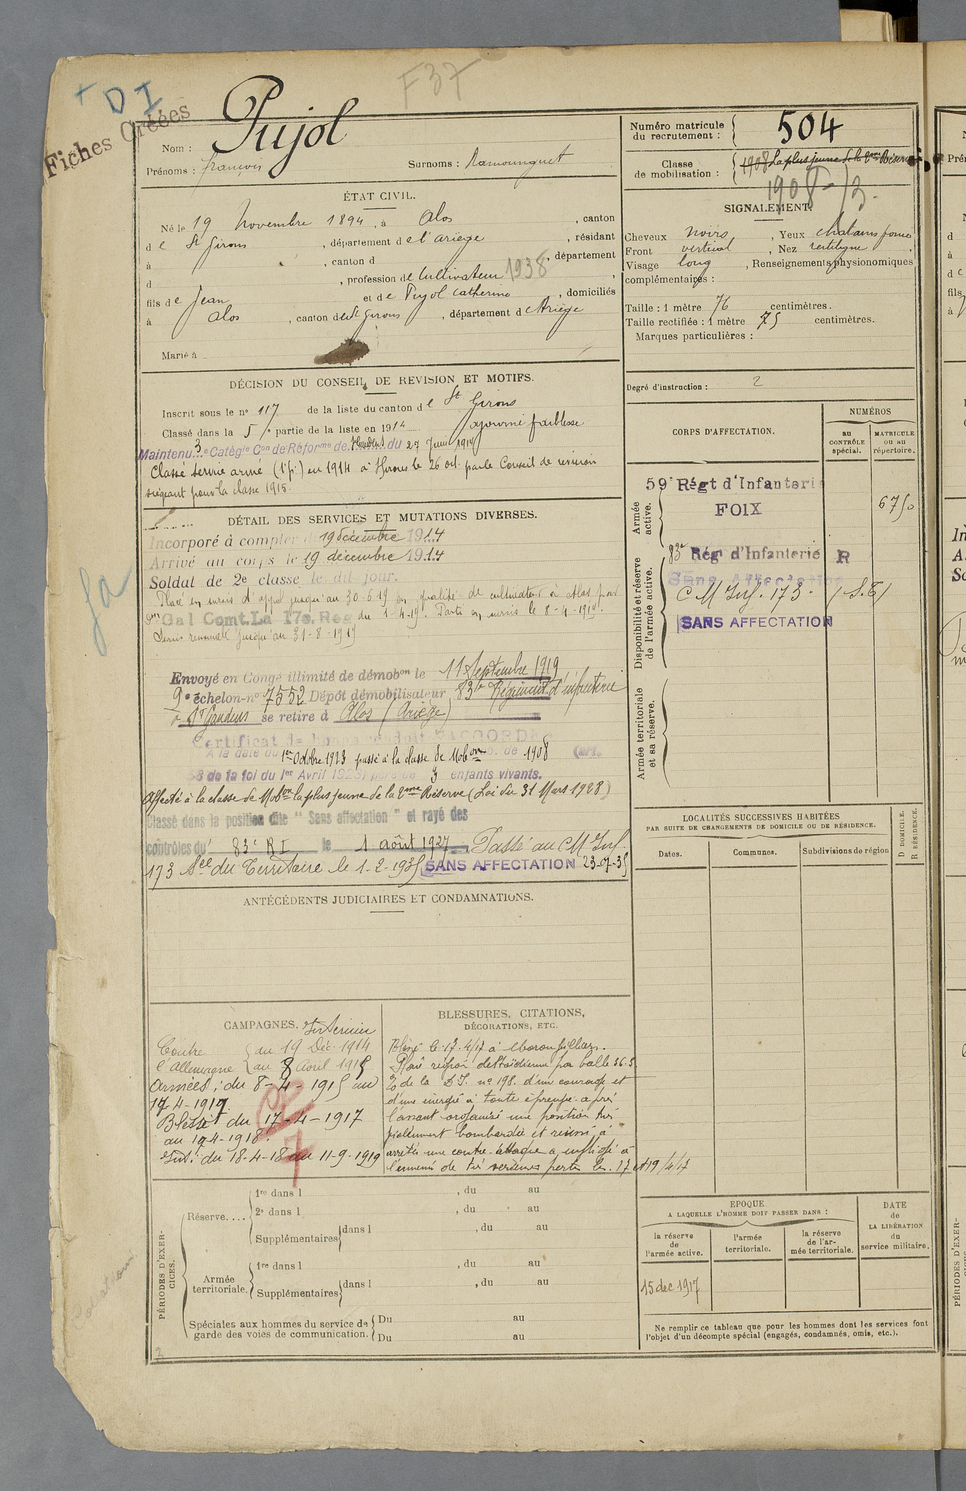 + D I
F37
Fiches Créées
Nom : Pujol
Prénoms : françois Surnoms : Ramounguet
Numéro matricule
du recrutement : 504
Classe
de mobilisation : 1908 La plus jeune de la 2eme Réserve
1908-13.
ÉTAT CIVIL.
Né le 19 Novembre 1894, à Alos, canton
d e St Girons, département d e l'ariège, résidant
à , canton d , département
d , profession de cultivateur 1938,
fils de Jean et de Pujol Catherine, domiciliés
à Alos, canton de St Girons, département d'Ariège
Marié à
SIGNALEMENT.
Cheveux noirs, Yeux chatains foncé
Front vertical, Nez rectiligne
Visage long, Renseignements physionomiques
complémentaires :
Taille : 1 mètre 76 centimètres.
Taille rectifiée : 1 mètre 75 centimètres.
Marques particulières :
Degré d'instruction : 2
DÉCISION DU CONSEIL DE REVISION ET MOTIFS.
Inscrit sous le n° 117 de la liste du canton de St Girons
Classé dans la 5e partie de la liste en 1914 ajourné faiblesse
Maintenu 3e Catégie Con de Réforme de du 27 Juin 1919
Classé Service armé (1ère p.) en 1914 à St Girons le 26 oct. par le Conseil de revision
siégeant pour la classe 1915.
DÉTAIL DES SERVICES ET MUTATIONS DIVERSES.
Incorporé à compter du 19 décembre 1914
Arrivé au corps le 19 décembre 1914
Soldat de 2e classe le dit jour.
Placé en sursis d'appel jusqu'au 30-6-19 en qualité de cultivateur à Alos par
Gal Comt. La 17e Rég du 1-4-19. Parti en sursis le 8-4-1919.
Sursis renouvelé jusqu'au 31-8-1919
Envoyé en Congé illimité de démobon le 11 Septembre 1919
9e échelon n° 7552 Dépôt démobilisateur 83e Régiment d'infanterie
à St Gaudens se retire à Alos (Ariège)
Certificat de bonne conduite ACCORDÉ
A la date du 1er Octobre 1923 passé à la classe de Mobon de 1908 (art.
58 de la loi du 1er Avril 1923) père de 3 enfants vivants.
Affecté à la classe de Mobon la plus jeune de la 2eme Réserve (Loi du 31 Mars 1928)
Classé dans la position dite " Sans affectation " et rayé des
contrôles du 83e RI le 1 août 1927. Passé au C M Inf.
173 Son du Territoire le 1-2-1935 SANS AFFECTATION 23-07-35
ANTÉCÉDENTS JUDICIAIRES ET CONDAMNATIONS.
CORPS D'AFFECTATION.
NUMÉROS
au
CONTRÔLE
spécial.
MATRICULE
ou au
répertoire.
Armée
active.
59e Régt d'Infanterie
FOIX
6750
Disponibilité et réserve
de l'armée active.
83e Rég d'Infanterie R
Sans Affectation
C M Inf. 173. (S.T)
SANS AFFECTATION
Armée territoriale
et sa réserve.
LOCALITÉS SUCCESSIVES HABITÉES
PAR SUITE DE CHANGEMENTS DE DOMICILE OU DE RÉSIDENCE.
D DOMICILE.
R RÉSIDENCE.
Dates.
Communes.
Subdivisions de région
CAMPAGNES.
Intérieur
Contre du 19 Déc 1914
l'Allemagne au 8 avril 1915
Armées : du 8-4-1915 au
17 4-1917
Blessé du 17-4-1917
au 17-4-1918.
Int. du 18-4-18 au 11-9-1919
BLESSURES, CITATIONS,
DÉCORATIONS, ETC.
Blessé le 17-4/17 à Moronvilliers.
Plaie région deltoïdienne par balle
de la D.I. n° 198. d'un courage et
d'une énergie à toute épreuve. après
l'assaut organisé une position très
violemment bombardée et réussi à
arrêter une contre-attaque a infligé à
l'ennemi de très sérieuses pertes les 17 et 19/4/17
PÉRIODES D'EXER-
CICES.
Réserve....
1re dans l , du au
2e dans l , du au
Supplémentaires dans l , du au
Armée
territoriale.
1re dans l , du au
Supplémentaires dans l , du au
Spéciales aux hommes du service de
garde des voies de communication.
Du au
Du au
EPOQUE
A LAQUELLE L'HOMME DOIT PASSER DANS :
la réserve
de
l'armée active.
l'armée
territoriale.
la réserve
de l'ar-
mée territoriale.
DATE
de
LA LIBÉRATION
du
service militaire.
15 dec 1917
Ne remplir ce tableau que pour les hommes dont les services font
l'objet d'un décompte spécial (engagés, condamnés, omis, etc.).